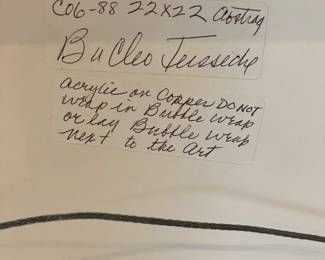 C06-88 22x22 Abstraq
By Cleo Teissedre
acrylic on copper DO NOT
wrap in Bubble wrap
or lay Bubble wrap
next to the Art